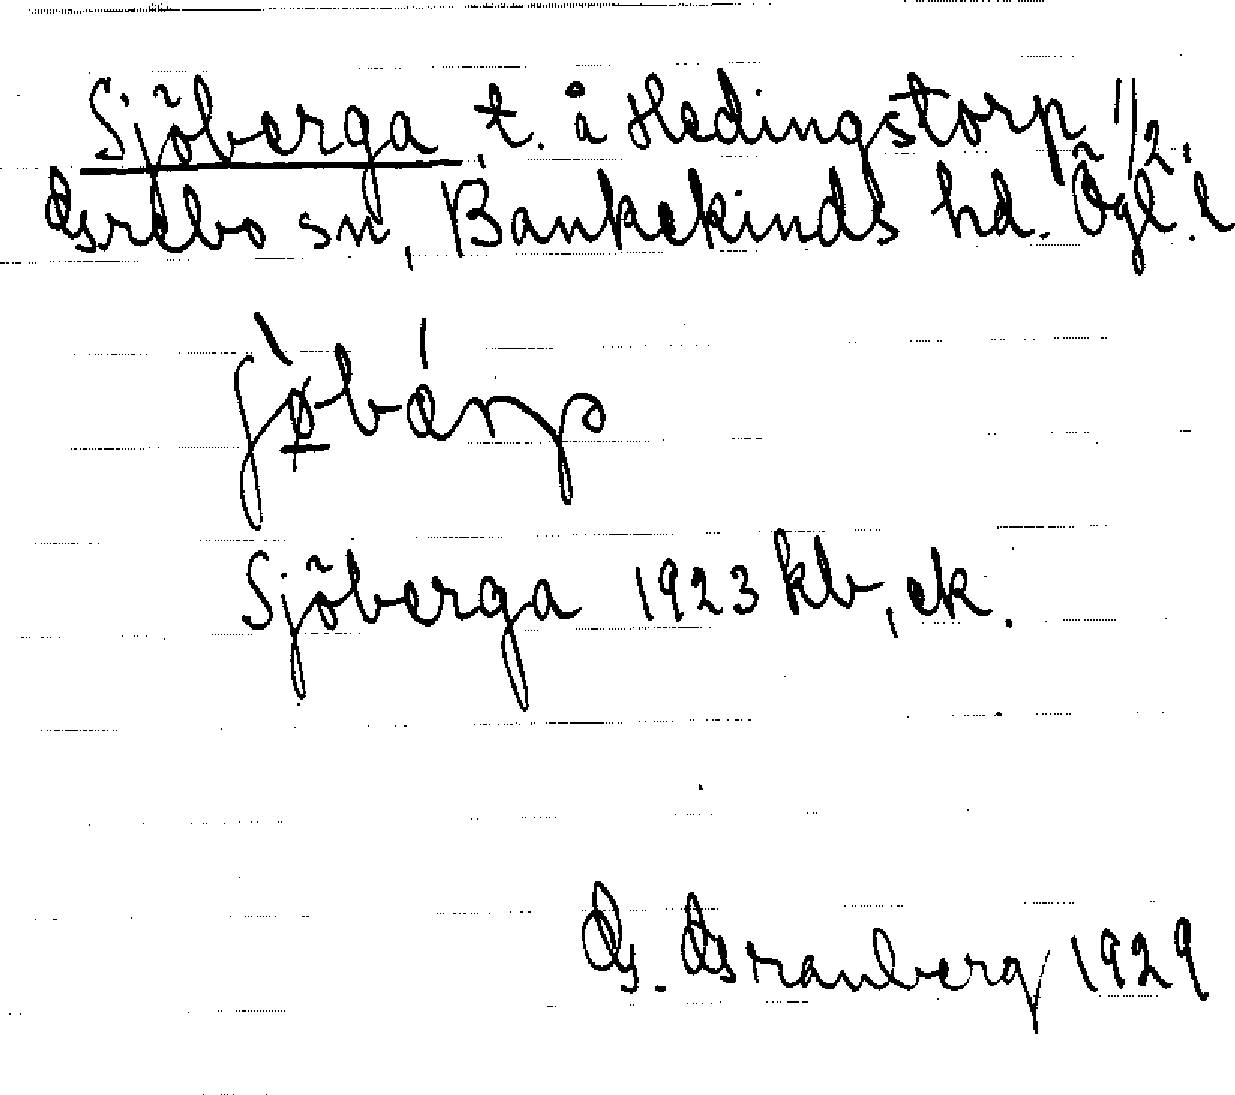 Sjöberga, t. å Hedingstorp 1/2.
Grebo sn, Bankekinds hd. Ögl.
Sjöberga 1923 kb, ek.
G. Granberg 1929